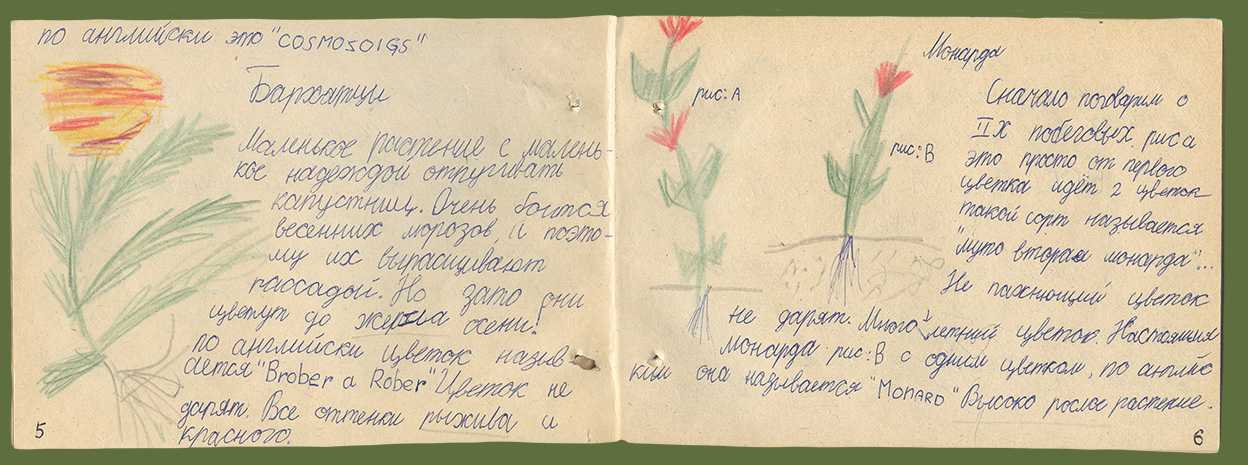 по английски это "COSMOSOIGS"
Бархатцы
Маленькое растение с малень-
кое надеждой отпугивать
капустниц. Очень боится
весенних морозов, и поэто-
му их выращивают
рассадой. Но зато они
цветут до жерла осени!
по английски цветок назыв
ается "Brober a Rober" Цветок не
дарят. Все оттенки рыжива и
красного.
5
рис: А
Монарда
рис: В
Сначало поговарим о
IIХ побеговых. рис а
это просто от первого
цветка идёт 2 цветок
такой сорт называется
"муто вторая монарда"...
Не пахнющий цветок
не дарят. Много летний цветок. Настоящия
монарда рис: В с одним цветком, по англис
кии она называется "MONARD" Высоко рослое растение.
6